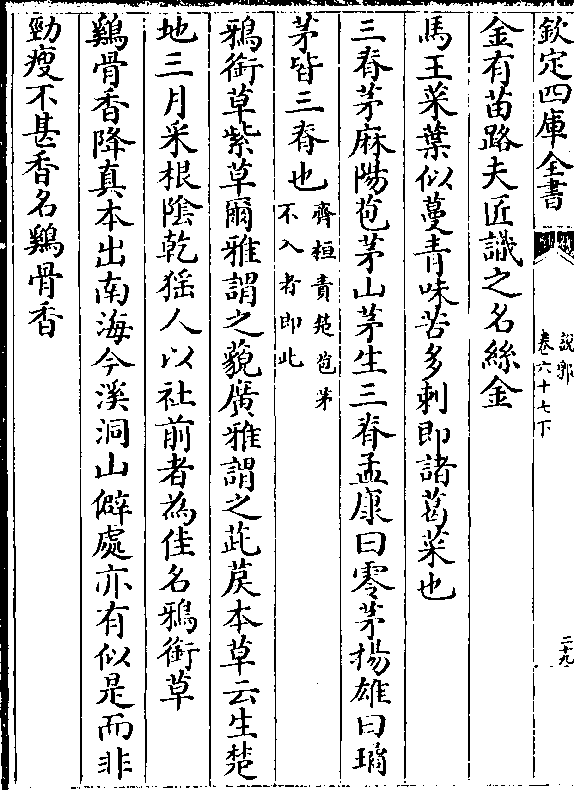 欽定四庫全書
説郛
卷六十七下
二十九
金有苗路夫匠識之名絲金
馬王菜葉似蔓青味苦多刺即諸葛菜也
三脊茅麻陽苞茅山茅生三脊孟康曰零茅揚雄曰璚
茅皆三脊也齊桓責楚苞茅
不入者即此
鴉銜草紫草爾雅謂之藐廣雅謂之茈䓞本草云生楚
地三月采根陰乾猺人以社前者為佳名鴉銜草
鷄骨香降真本出南海今溪洞山僻處亦有似是而非
勁瘦不甚香名鷄骨香